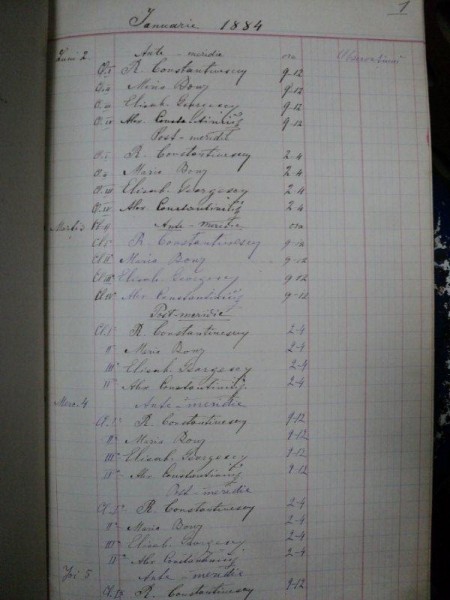 1
Ianuarie 1884
Ante-meridie ora Observatiuni
Luni 2. Cl. I R. Constantinescu 9-12
Cl. II Maria Bony 9-12
Cl. III Elisab. Georgescu 9-12
Cl. IV Alex. Constantiniu 9-12
Post-meridie
Cl. I R. Constantinescu 2-4
Cl. II Maria Bony 2-4
Cl. III Elisab. Georgescu 2-4
Cl. IV Alex. Constantiniu 2-4
Marti 3 Ante-meridie ora
Cl. I R. Constantinescu 9-12
Cl. II Maria Bony 9-12
Cl. III Elisab. Georgescu 9-12
Cl. IV Alex. Constantiniu 9-12
Post-meridie
Cl. I R. Constantinescu 2-4
II Maria Bony 2-4
III Elisab. Georgescu 2-4
IV Alex. Constantiniu 2-4
Merc. 4 Ante-meridie
Cl. I R. Constantinescu 9-12
II Maria Bony 9-12
III Elisab. Georgescu 9-12
IV Alex. Constantiniu 9-12
Post-meridie
Cl. I R. Constantinescu 2-4
II Maria Bony 2-4
III Elisab. Georgescu 2-4
IV Alex. Constantiniu 2-4
Joi 5 Ante-meridie
R. Constantinescu 9-12